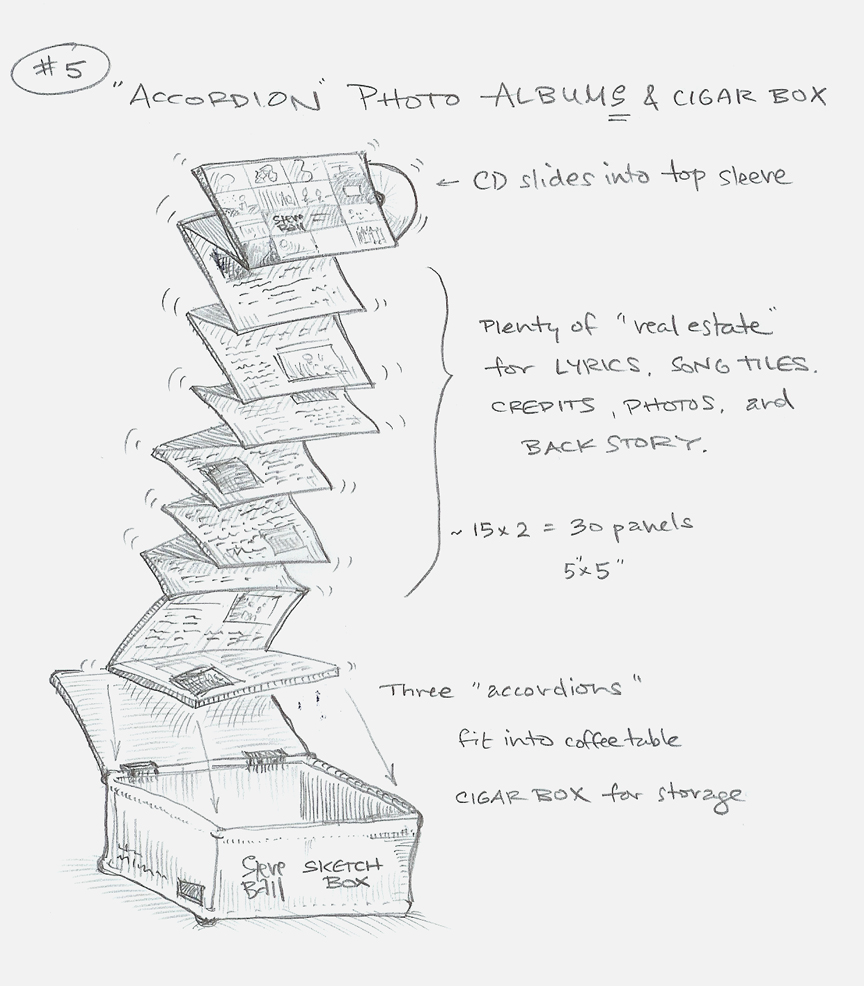 #5
"ACCORDION" PHOTO ALBUMS & CIGAR BOX
← CD slides into top sleeve
Steve
Ball
Plenty of "real estate"
for LYRICS, SONG TILES.
CREDITS, PHOTOS, and
BACK STORY.
~ 15 x 2 = 30 panels
5"x 5"
Three "accordions"
fit into coffee table
CIGAR BOX for storage
Steve SKETCH
Ball BOX